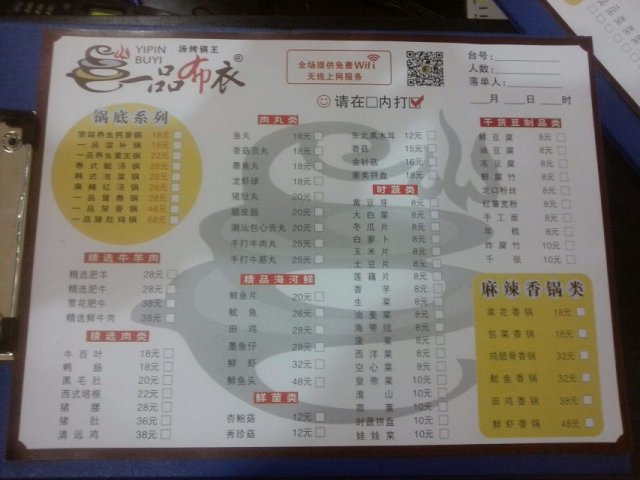 YIPIN
BUYI
汤烤锅王
一品布衣®
全场提供免费WiFi
无线上网服务
☺请在□内打☑
台号:
人数:
落单人:
月 日 时
锅底系列
宫廷养生阿膏锅 18元
一品滋补锅 18元
一品养生菌王锅 22元
泰式酸汤锅 26元
韩式泡菜锅 26元
麻辣红汤锅 26元
一品鸳鸯锅 28元
一品茶瓮锅 48元
一品猪肚鸡锅 68元
精选牛羊肉
精选肥羊 28元
精选肥牛 28元
雪花肥牛 38元
精选鲜牛肉 38元
精选肉类
牛百叶 18元
鸭肠 18元
黑毛肚 20元
西式培根 22元
猪腰 28元
猪肚 36元
清远鸡 38元
肉丸类
鱼丸 18元
香菇贡丸 18元
墨鱼丸 18元
龙虾球 18元
猪肚丸 20元
脆皮肠 20元
潮汕包心贡丸 20元
手打牛肉丸 25元
手打牛筋丸 25元
精品海河鲜
鲜鱼片 20元
鱿鱼 26元
田鸡 28元
墨鱼仔 28元
鲜虾 32元
鲜鱼头 48元
鲜菌类
杏鲍菇 12元
秀珍菇 12元
东北黑木耳 12元
香菇 15元
金针菇 16元
菌类拼盘 18元
时蔬类
黄豆芽 8元
大白菜 8元
冬瓜片 8元
白萝卜 8元
玉米片 8元
土豆片 8元
莲藕片 8元
香芋 8元
生菜 8元
油麦菜 8元
海带结 8元
菠菜 8元
西洋菜 8元
空心菜 8元
皇帝菜 10元
淮山 10元
茼蒿 10元
时蔬拼盘 10元
娃娃菜 10元
干货豆制品类
鲜豆腐 8元
油豆腐 8元
冻豆腐 8元
鲜腐竹 8元
龙口粉丝 8元
红薯宽粉 8元
手工面 8元
年糕 8元
炸腐竹 10元
千张 10元
麻辣香锅类
菜花香锅 18元
包菜香锅 18元
鸡脆骨香锅 32元
鱿鱼香锅 32元
田鸡香锅 38元
鲜虾香锅 48元